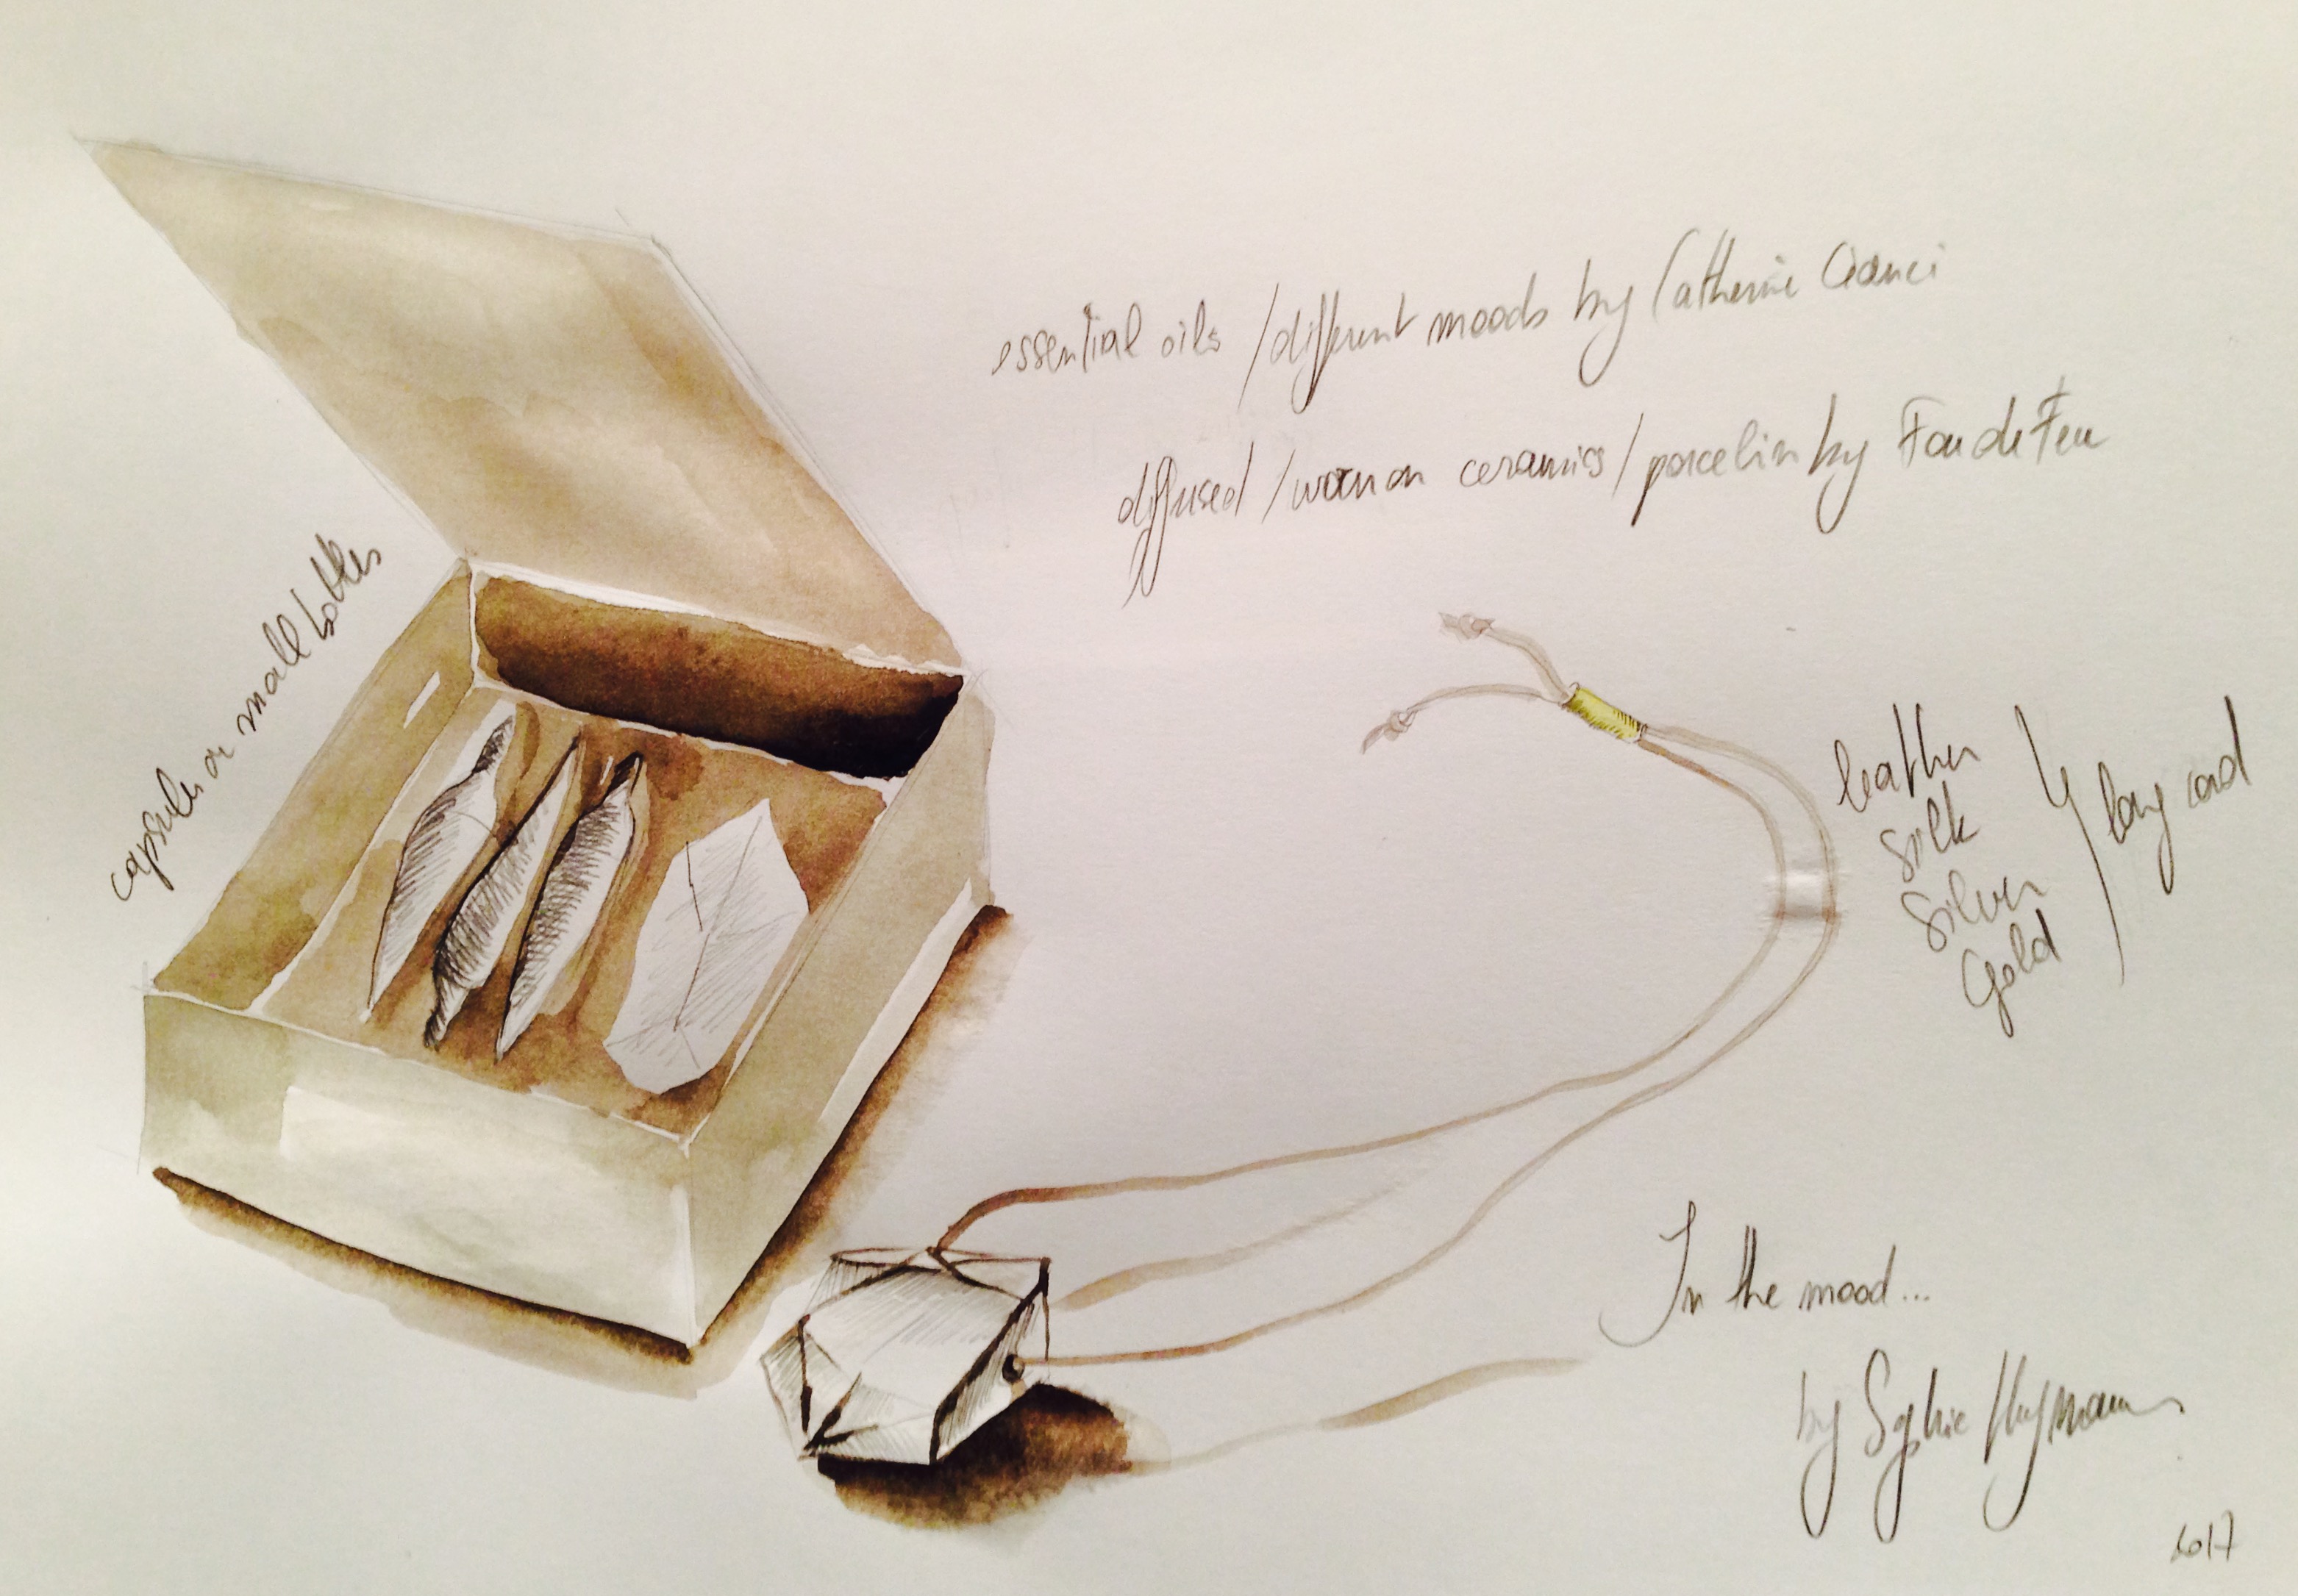 essential oils / different moods by Catherine
diffused / worn on ceramics / porcelin by Fou de Feu
capsules or small bottles
leather
silk
silver
gold
long cord
In the mood...
by Sophie
2017